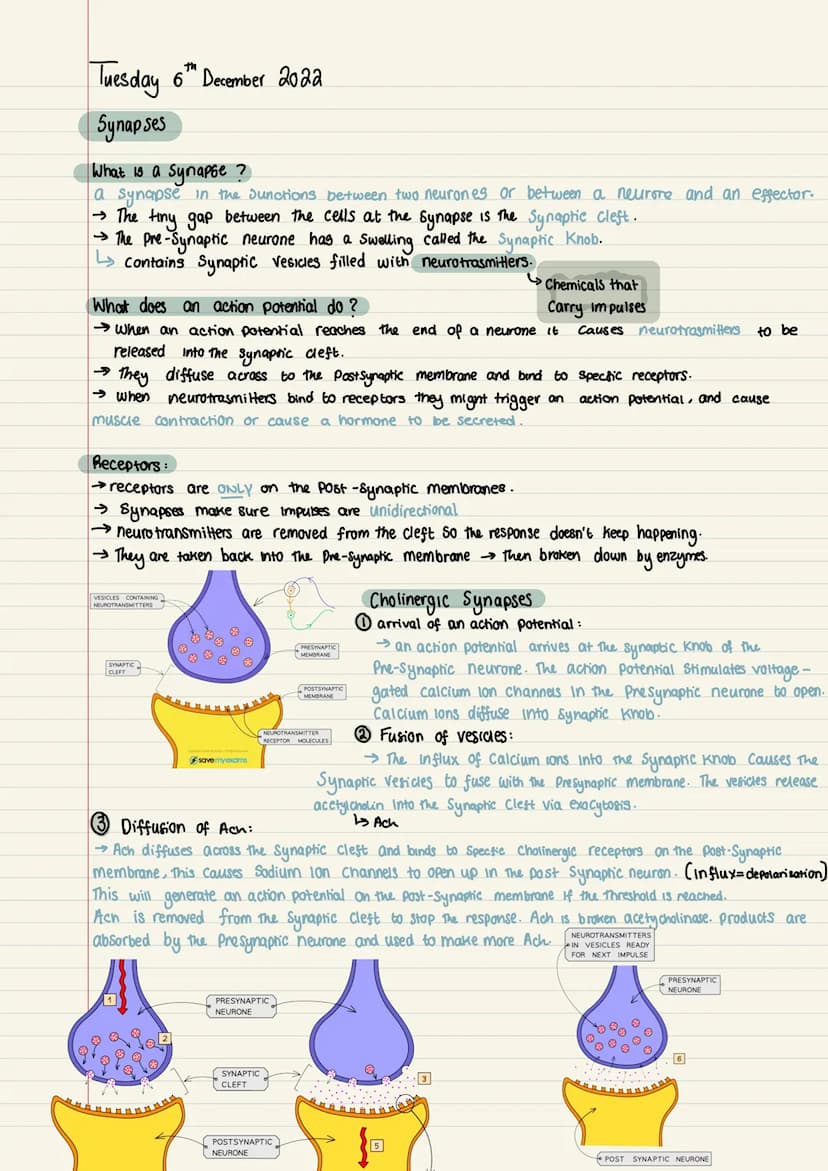 Tuesday 6th December 2022
Synapses
What is a Synapse ?
a Synapse in the Junctions between two neurones or between a neurone and an effector.
→ The tiny gap between the cells at the Synapse is the Synaptic Cleft.
→ The Pre-Synaptic neurone has a Swelling called the Synaptic Knob.
↳ Contains Synaptic Vesicles filled with neurotrasmitters.
↳ Chemicals that
Carry impulses
What does an action potential do ?
→ When an action potential reaches the end of a neurone it causes neurotrasmitters to be
released into the synaptic cleft.
→ They diffuse across to the Postsynaptic membrane and bind to specific receptors.
→ When neurotrasmitters bind to receptors they might trigger an action potential, and cause
muscle contraction or cause a hormone to be secreted.
Receptors:
→ receptors are ONLY on the Post-Synaptic membranes.
→ Synapses make sure impulses are unidirectional
→ neurotransmitters are removed from the cleft so the response doesn't keep happening.
→ They are taken back into the Pre-Synaptic membrane → then broken down by enzymes.
VESICLES CONTAINING
NEUROTRANSMITTERS
SYNAPTIC
CLEFT
PRESYNAPTIC
MEMBRANE
POSTSYNAPTIC
MEMBRANE
NEUROTRANSMITTER
RECEPTOR MOLECULES
savemyexams
Cholinergic Synapses
① arrival of an action potential:
→ an action potential arrives at the synaptic knob of the
Pre-Synaptic neurone. The action Potential Stimulates voltage-
gated calcium ion channels in the Presynaptic neurone to open.
Calcium ions diffuse into Synaptic Knob.
② Fusion of vesicles:
→ The influx of Calcium ions into the Synaptic Knob Causes the
Synaptic vesicles to fuse with the Presynaptic membrane. The vesicles release
acetylcholin into the Synaptic Cleft via exocytosis.
↳ Ach
③ Diffusion of Ach:
→ Ach diffuses across the Synaptic Cleft and binds to Specific Cholinergic receptors on the Post-Synaptic
membrane, This causes Sodium Ion Channels to open up in the post Synaptic neuron. (influx=depolarisation)
This will generate an action potential on the Post-Synaptic membrane if the threshold is reached.
Ach is removed from the Synaptic Cleft to stop the response. Ach is broken acetycholinase. products are
absorbed by the Presynaptic neurone and used to make more Ach
NEUROTRANSMITTERS
IN VESICLES READY
FOR NEXT IMPULSE
PRESYNAPTIC
NEURONE
1
2
PRESYNAPTIC
NEURONE
SYNAPTIC
CLEFT
3
6
POSTSYNAPTIC
NEURONE
5
POST SYNAPTIC NEURONE